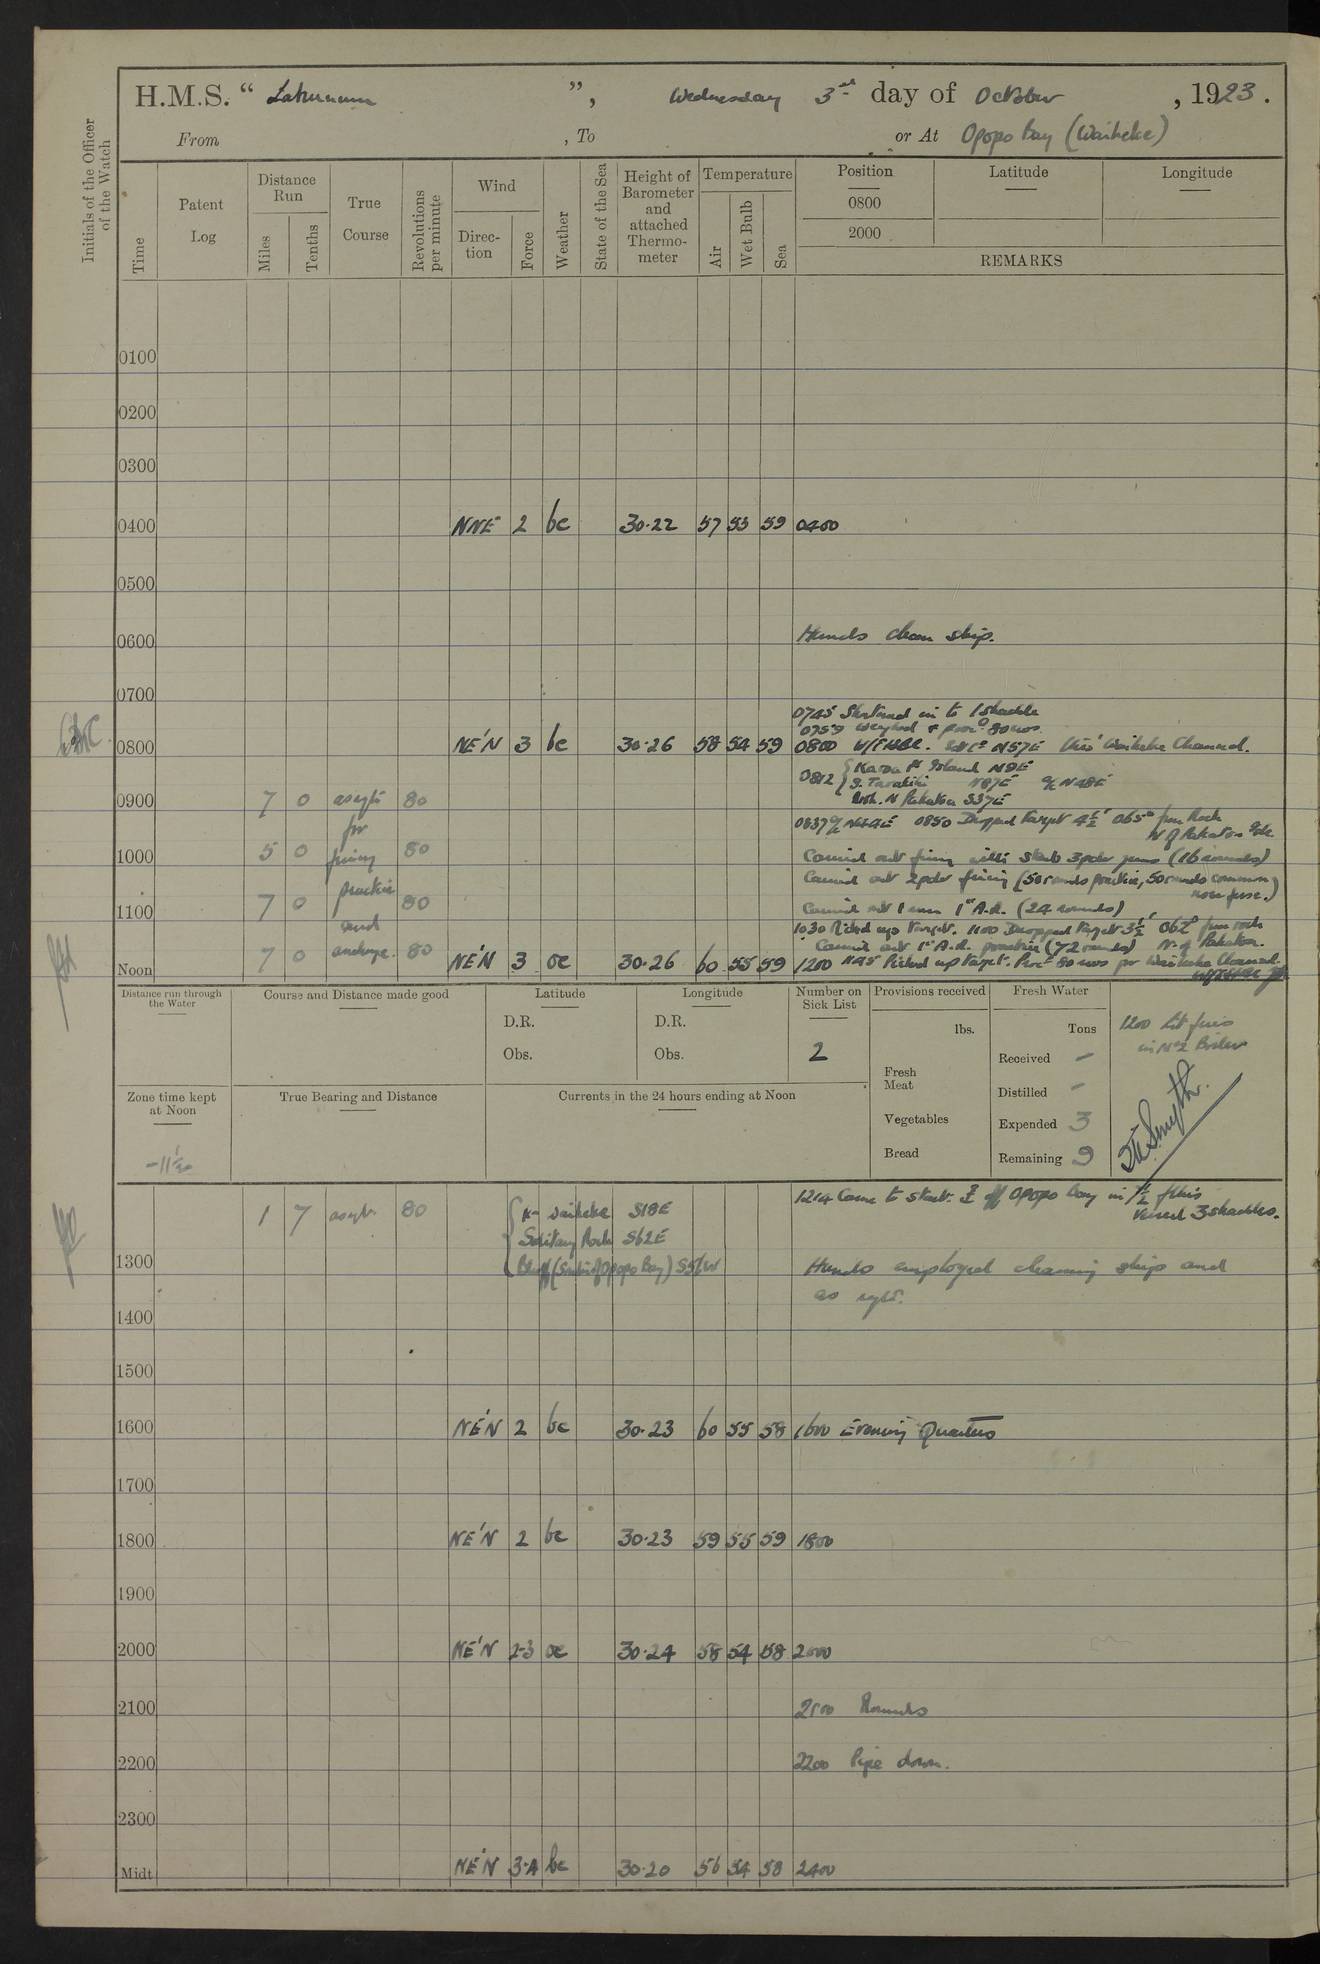 H.M.S. “ Laburnum ”, Wednesday 3rd day of October, 1923.
From , To or At Opopo Bay (Waiheke)
Initials of the Officer of the Watch
Time
Patent Log
Distance Run
Miles
Tenths
True Course
Revolutions per minute
Wind
Direction
Force
Weather
State of the Sea
Height of Barometer and attached Thermometer
Temperature
Air
Wet Bulb
Sea
Position
0800
2000
Latitude
Longitude
REMARKS
0100
0200
0300
0400 NNE 2 bc 30.22 57 53 59 0400
0500
0600 Hands clean ship.
0700
0745 Shortened in to 1 shackle
0759 Weighed & proc^d 80 revs.
0800 NE'N 3 bc 30.26 58 54 59 0800 N57E thro' Waiheke Channel.
0812 { Karamu Island N9E
S. Tarakihi N87E a/c N48E
Pakatoa S37E
0900 7 0 as reqte 80
0837 a/c N44E 0850 Dropped Target 4½' 065° from Rock
N of Pakatoa
for
1000 5 0 firing 80 Carried out firing with Starb 3pdr guns (16 rounds)
Carried out 2pdr firing (50 rounds practice, 50 rounds common
nose fuse.)
practice
1100 7 0 80 Carried out 1 1st A.R. (24 rounds)
and
1030 Picked up target. 1100 Dropped Target 3½' 062° from rock
Carried out 1st A.R. practice (72 rounds) N. of Pakatoa.
Noon 7 0 anchorge. 80 NE'N 3 oc 30.26 60 55 59 1200 1145 Picked up target. Proc^d 80 revs for Waiheke Channel.
Distance run through the Water
Course and Distance made good
Latitude
D.R.
Obs.
Longitude
D.R.
Obs.
Number on Sick List
2
Provisions received
lbs.
Fresh Meat
Vegetables
Bread
Fresh Water
Tons
Received -
Distilled -
Expended 3
Remaining 9
1200 Lit fires
in No 2 Boiler
Smyth.
Zone time kept at Noon
-11½
True Bearing and Distance
Currents in the 24 hours ending at Noon
1 7 as reqte 80
Waiheke S18E
Solitary Rock S62E
Bluff (South of Opopo Bay)
1214 Came to Starb. off Opopo Bay in 7½ fths
Veered 3 shackles.
1300 Hands employed cleaning ship and
as reqte.
1400
1500
1600 NE'N 2 bc 30.23 60 55 58 1600 Evening Quarters
1700
1800 NE'N 2 bc 30.23 59 55 59 1800
1900
2000 NE'N 2-3 oc 30.24 58 54 58 2000
2100 2100 Rounds
2200 2200 Pipe down.
2300
Midt NE'N 3-4 bc 30.20 56 54 58 2400